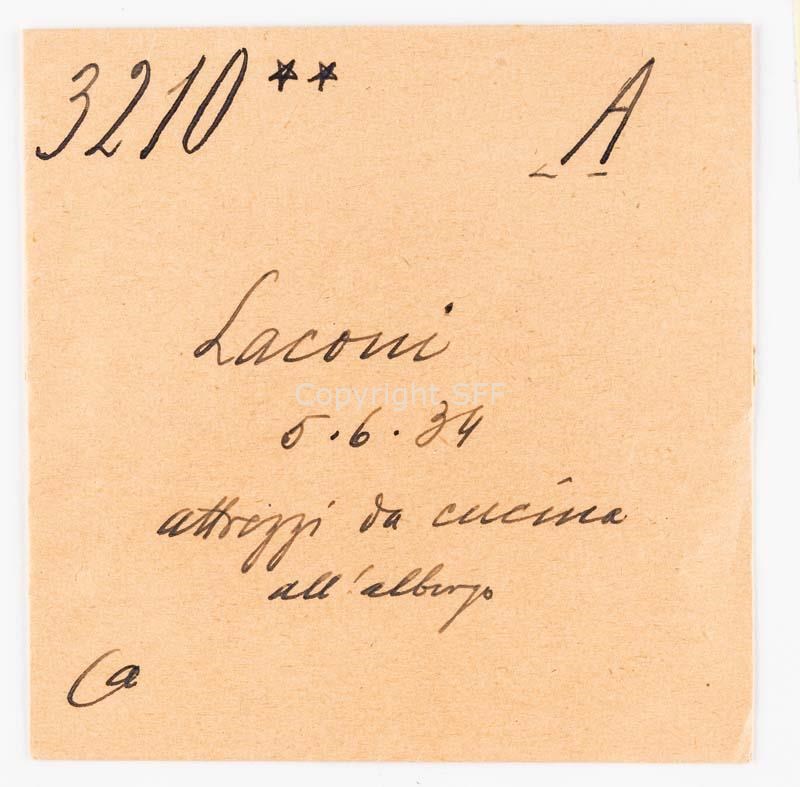 3210** A
Laconi
Copyright SFF
5.6.34
attrezzi da cucina
all'albergo
(a